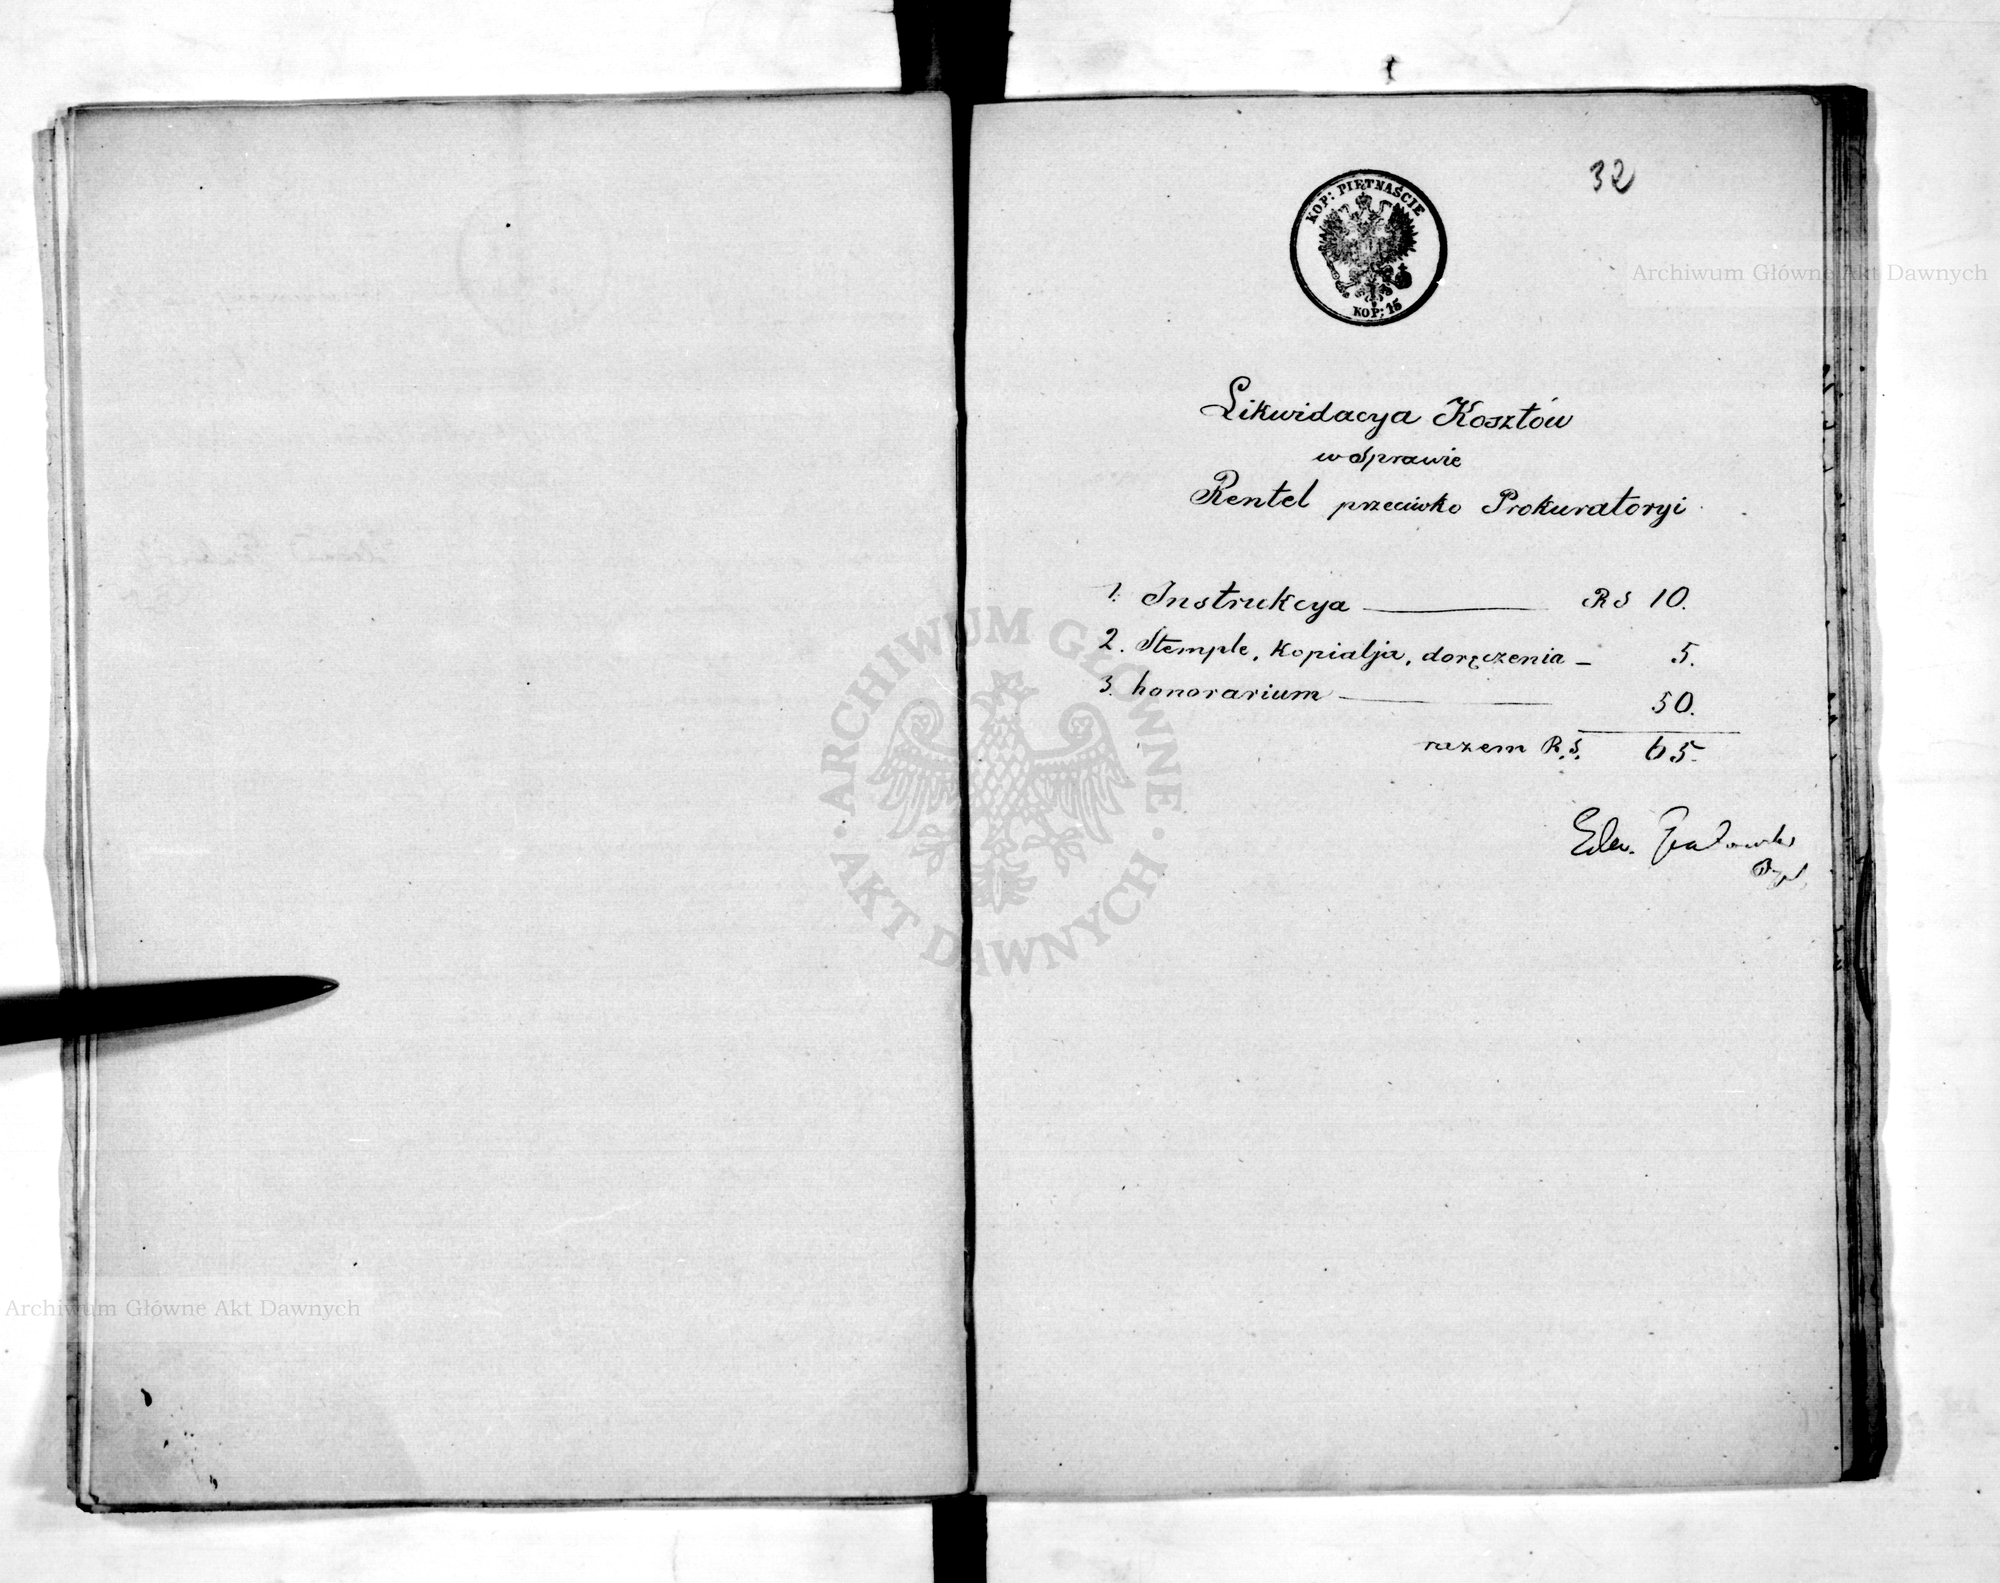 32
KOP: PIĘTNAŚCIE
KOP: 15
Archiwum Główne Akt Dawnych
Likwidacya Kosztów
w Sprawie
Rentel przeciwko Prokuratoryi
1. Instrukcya RS 10.
2. Stemple, kopialja, doręczenia – 5.
3. honorarium 50.
razem R.S. 65.
Edw.
ARCHIWUM GŁÓWNE
AKT DAWNYCH
Archiwum Główne Akt Dawnych